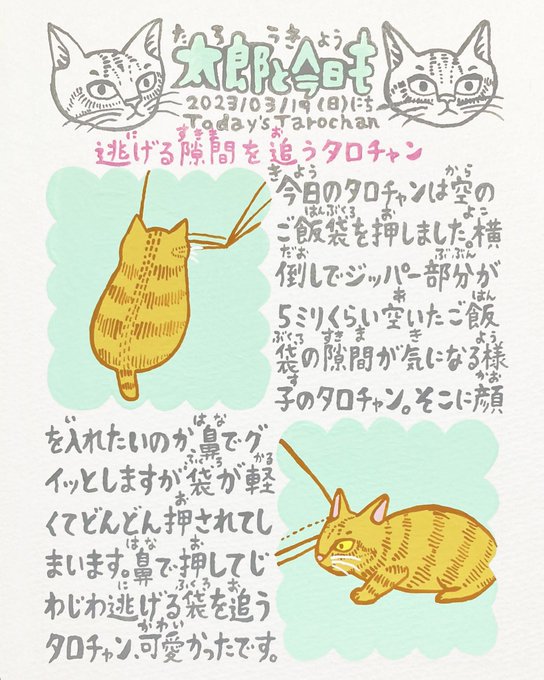 太郎と今日も
2023/03/19(日)にち
Today's Tarochan
逃げる隙間を追うタロチャン
今日のタロチャンは空の
ご飯袋を押しました。横
倒しでジッパー部分が
5ミリくらい空いたご飯
袋の隙間が気になる様
子のタロチャン。そこに顔
を入れたいのか鼻でグ
イッとしますが袋が軽
くてどんどん押されてし
まいます。鼻で押してじ
わじわ逃げる袋を追う
タロチャン、可愛かったです。